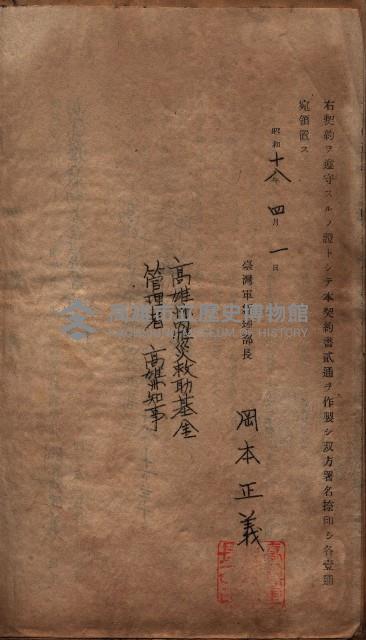 右契約ヲ遵守スルノ證トシテ本契約書貳通ヲ作製シ双方署名捺印シ各壹通
宛領置ス
昭和十八年四月一日
臺灣軍經理部長
岡本正義
高雄州罹災救助基金
管理者 高雄州知事
高雄市立歷史博物館
KAOHSIUNG MUSEUM OF HISTORY